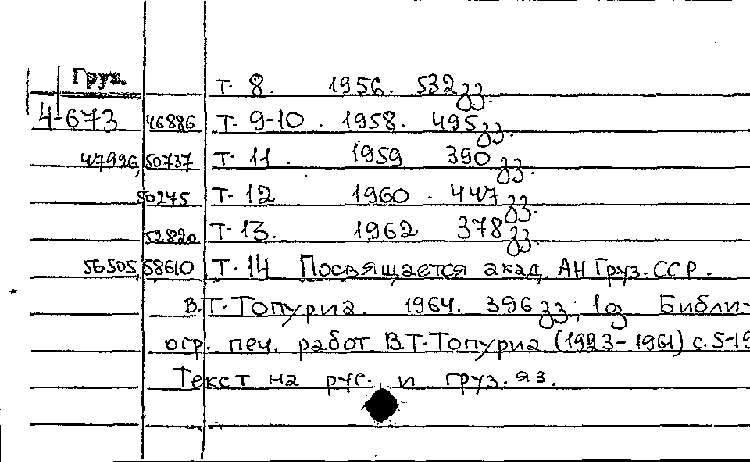 Груз. Т. 8. 1956. 532 გვ.
4-673 46886 Т. 9-10. 1958. 495 გვ.
47996, 50737 Т. 11. 1959 390 გვ.
50245 Т. 12 1960. 447 გვ.
52820 Т. 13. 1962 378 გვ.
56505, 58610 Т. 14 Посвящается акад. АН Груз. ССР.
В.Т. Топуриа. 1964. 396 გვ; 1 გ Библи-
огр. печ. работ В.Т. Топуриа (1923-1961) с. 5-19
Текст на рус. и груз. яз.